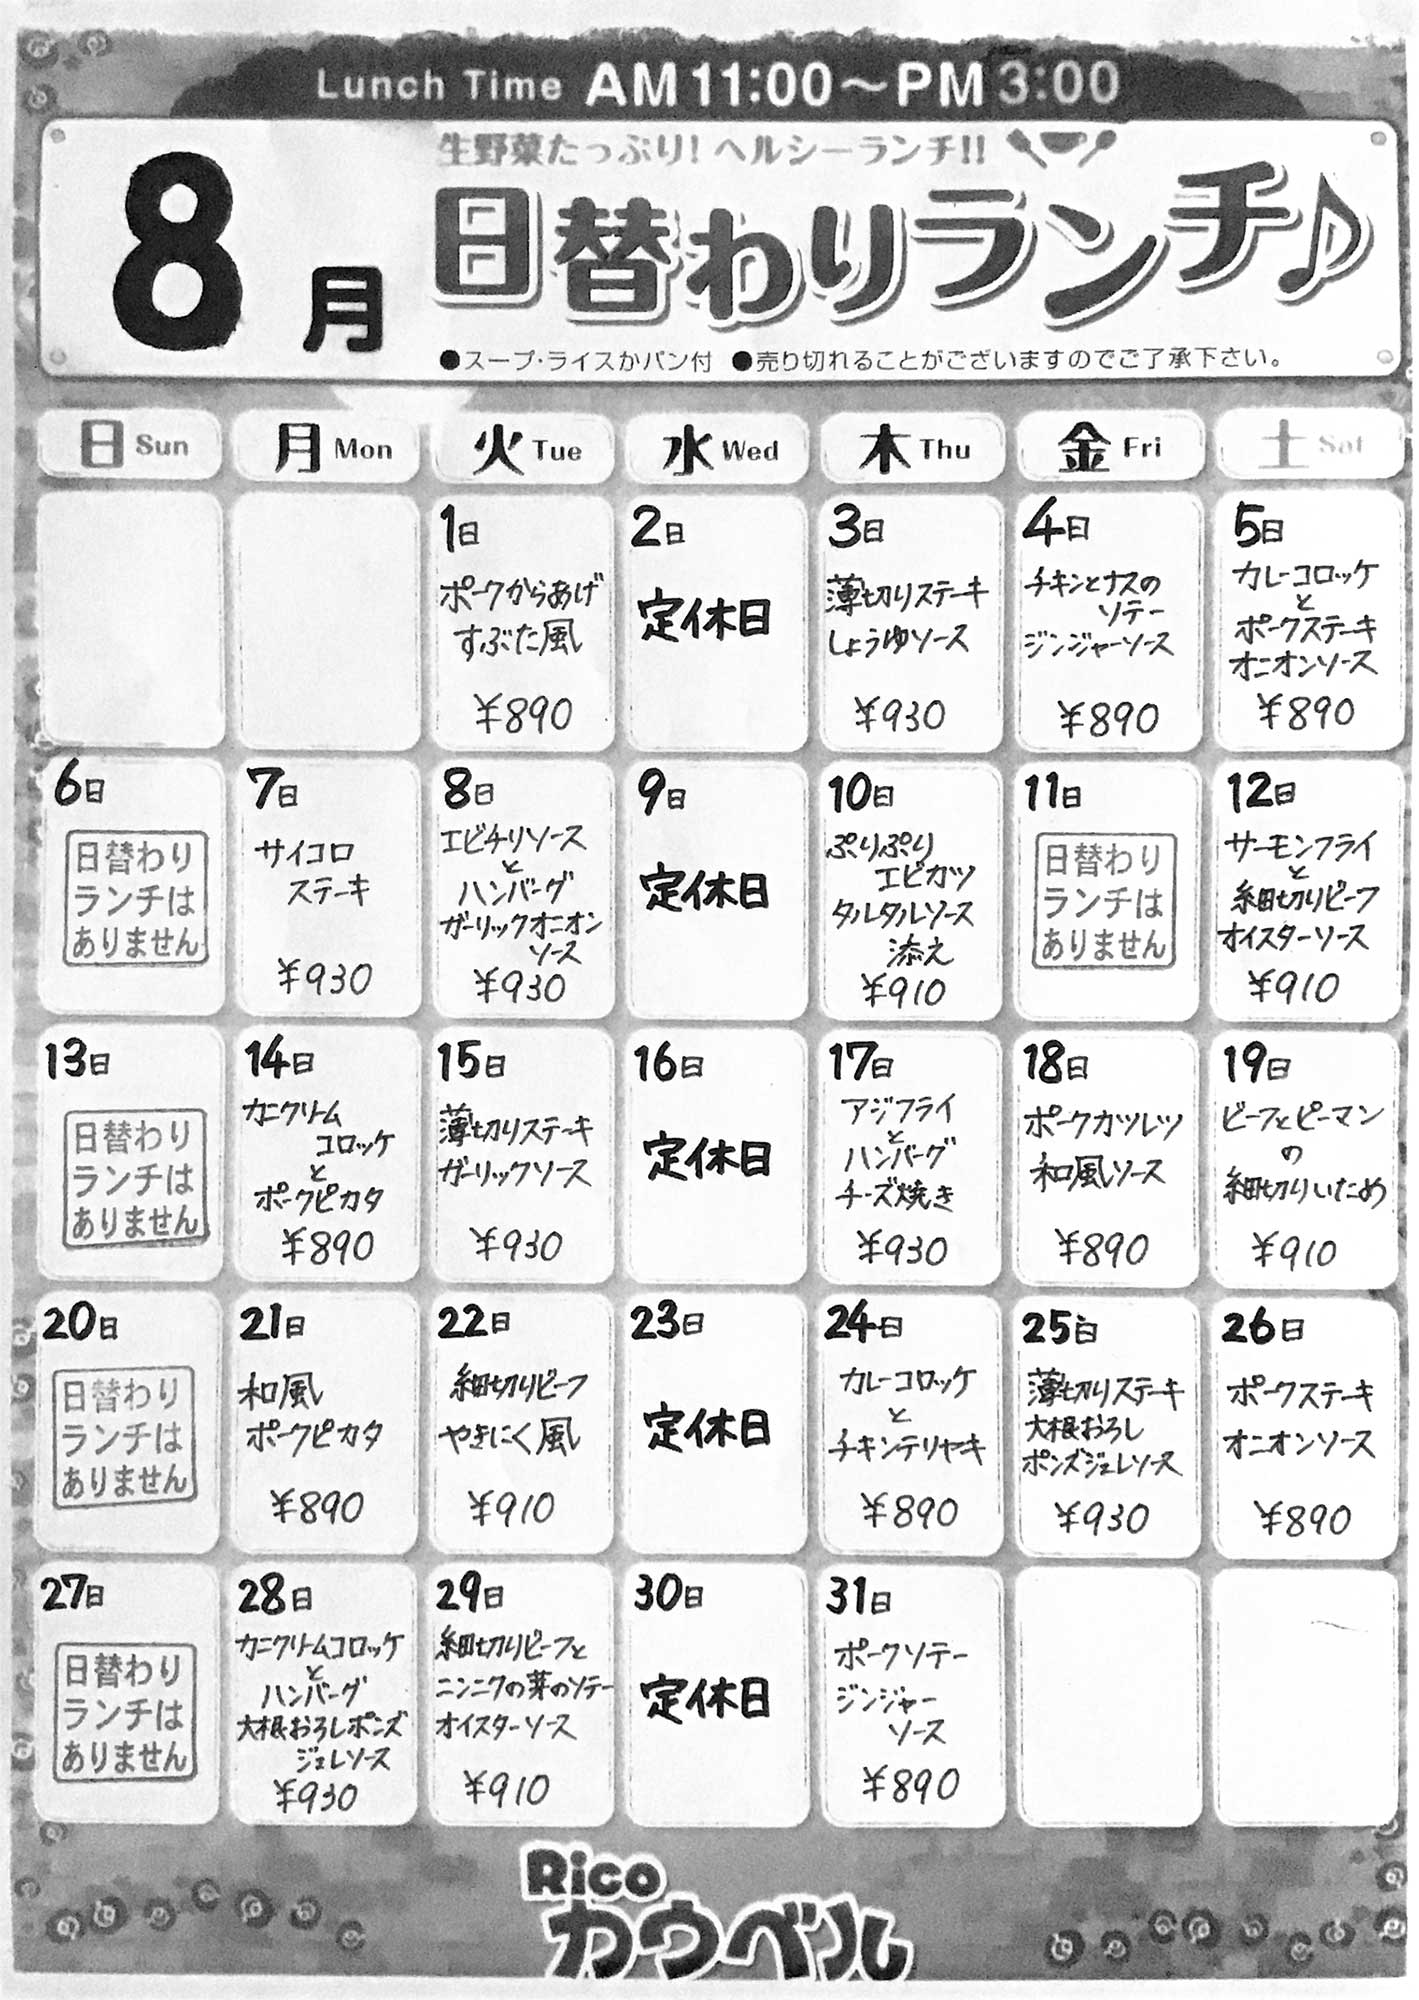 Lunch Time AM 11:00～PM 3:00
生野菜たっぷり!ヘルシーランチ!!
8月
日替わりランチ♪
●スープ・ライスかパン付 ●売り切れることがございますのでご了承下さい。
日 Sun
月 Mon
火 Tue
水 Wed
木 Thu
金 Fri
土 Sat
1日
ポークからあげ
すぶた風
¥890
2日
定休日
3日
薄切りステーキ
しょうゆソース
¥930
4日
チキンとナスの
ソテー
ジンジャーソース
¥890
5日
カレーコロッケ
と
ポークステーキ
オニオンソース
¥890
6日
日替わり
ランチは
ありません
7日
サイコロ
ステーキ
¥930
8日
エビチリソース
と
ハンバーグ
ガーリックオニオン
ソース
¥930
9日
定休日
10日
ぷりぷり
エビカツ
タルタルソース
添え
¥910
11日
日替わり
ランチは
ありません
12日
サーモンフライ
と
細切りビーフ
オイスターソース
¥910
13日
日替わり
ランチは
ありません
14日
カニクリーム
コロッケ
と
ポークピカタ
¥890
15日
薄切りステーキ
ガーリックソース
¥930
16日
定休日
17日
アジフライ
と
ハンバーグ
チーズ焼き
¥930
18日
ポークカツレツ
和風ソース
¥890
19日
ビーフとピーマン
の
細切りいため
¥910
20日
日替わり
ランチは
ありません
21日
和風
ポークピカタ
¥890
22日
細切りビーフ
やきにく風
¥910
23日
定休日
24日
カレーコロッケ
と
チキンテリヤキ
¥890
25日
薄切りステーキ
大根おろし
ポンズジュレソース
¥930
26日
ポークステーキ
オニオンソース
¥890
27日
日替わり
ランチは
ありません
28日
カニクリームコロッケ
と
ハンバーグ
大根おろしポンズ
ジュレソース
¥930
29日
細切りビーフと
ニンニクの芽のソテー
オイスターソース
¥910
30日
定休日
31日
ポークソテー
ジンジャー
ソース
¥890
Rico
カウベル